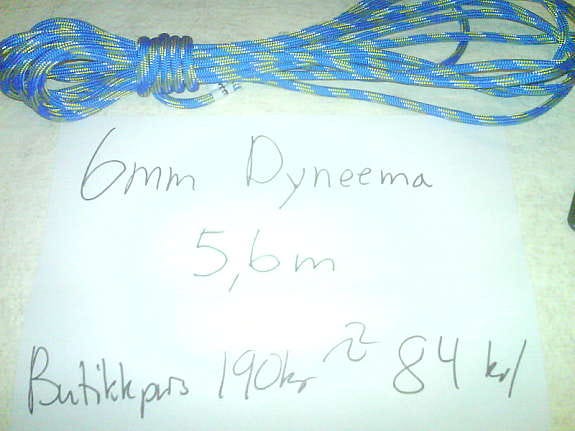 6mm Dyneema
5,6m
Butikkpris 190kr ~ 84 kr/